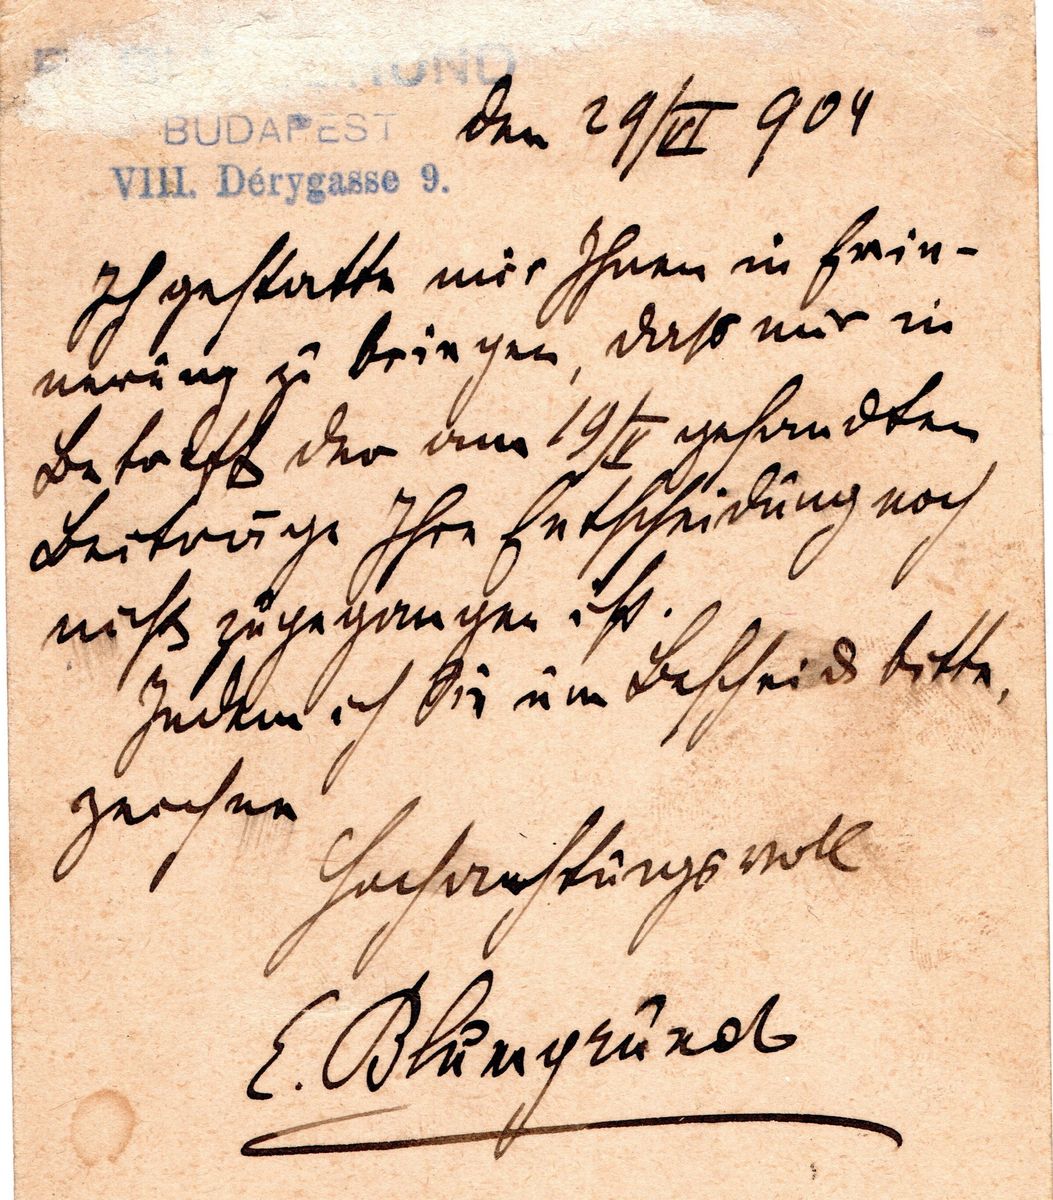 BUDAPEST
VIII. Dérygasse 9.
den 29/VI 904
Ich gestatte mir Ihnen in Erin-
nerung zu bringen, daß mir in
Betreff der am 19/V gesandten
Beiträge Ihre Entscheidung noch
nicht zugegangen ist.
Indem ich Sie um Bescheid bitte,
zeichne
Hochachtungsvoll
E. Blumgrund